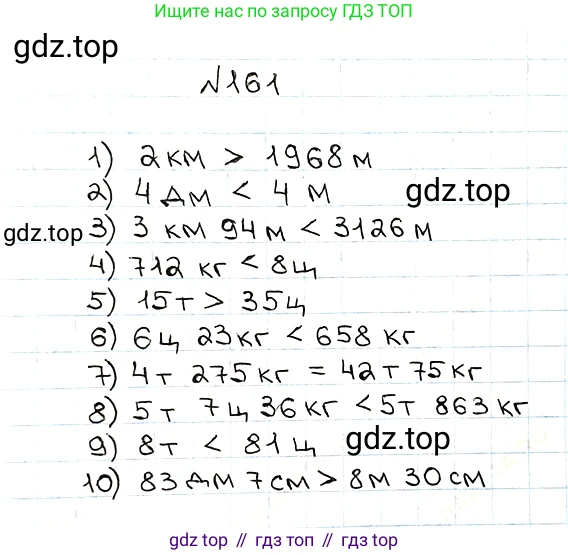 Ищите нас по запросу ГДЗ ТОП
gdz.top
№161
1) 2 км > 1968 м
2) 4 дм < 4 м
gdz.top
gdz.top
3) 3 км 94 м < 3126 м
4) 712 кг < 8ц
5) 15т > 35ц
6) 6ц 23кг < 658 кг
7) 4т 275кг = 42т 75кг
8) 5т 7ц 36кг < 5т 863 кг
9) 8т < 81ц
gdz.top
10) 83 дм 7см > 8м 30 см
gdz.top // гдз топ // gdz.top